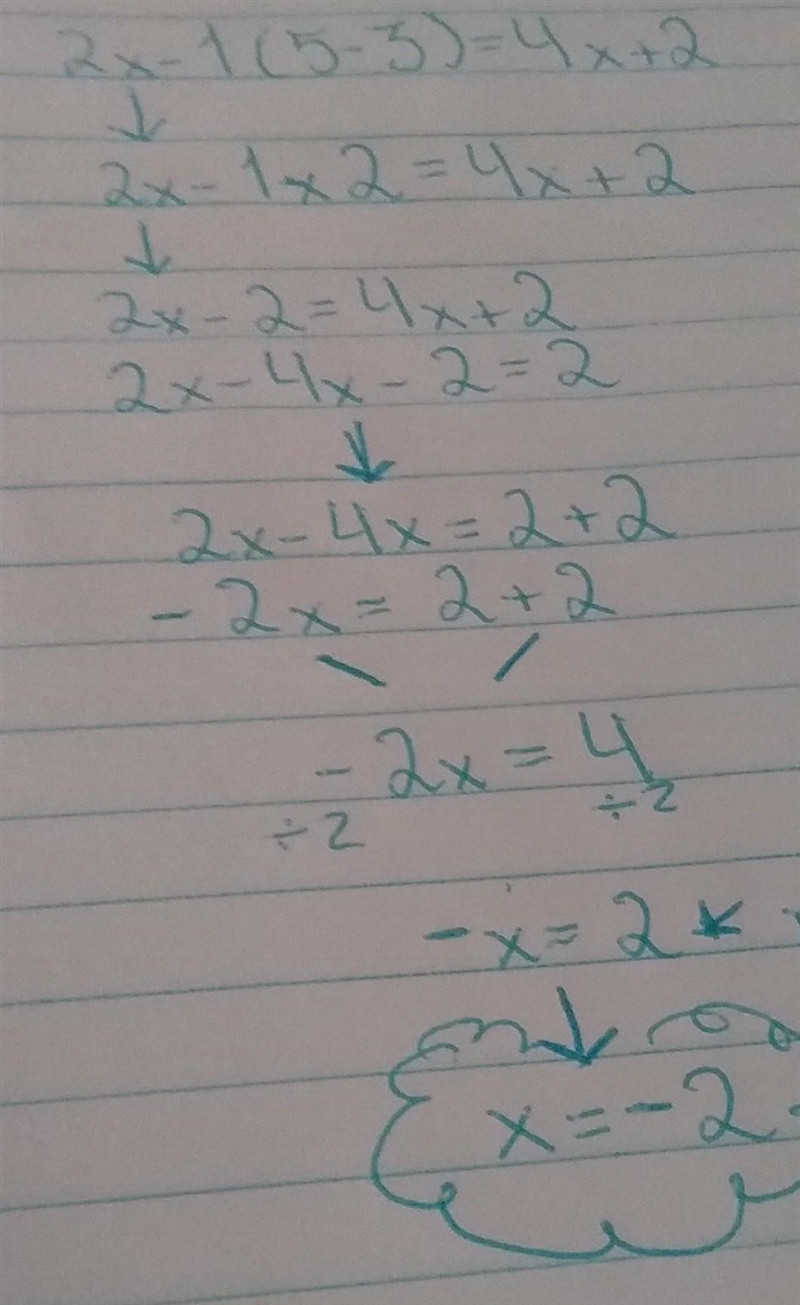 2x-1(5-3)=4x+2
↓
2x-1x2=4x+2
↓
2x-2=4x+2
2x-4x-2=2
↓
2x-4x=2+2
-2x=2+2
-2x=4
÷2 ÷2
-x=2*
↓
x=-2